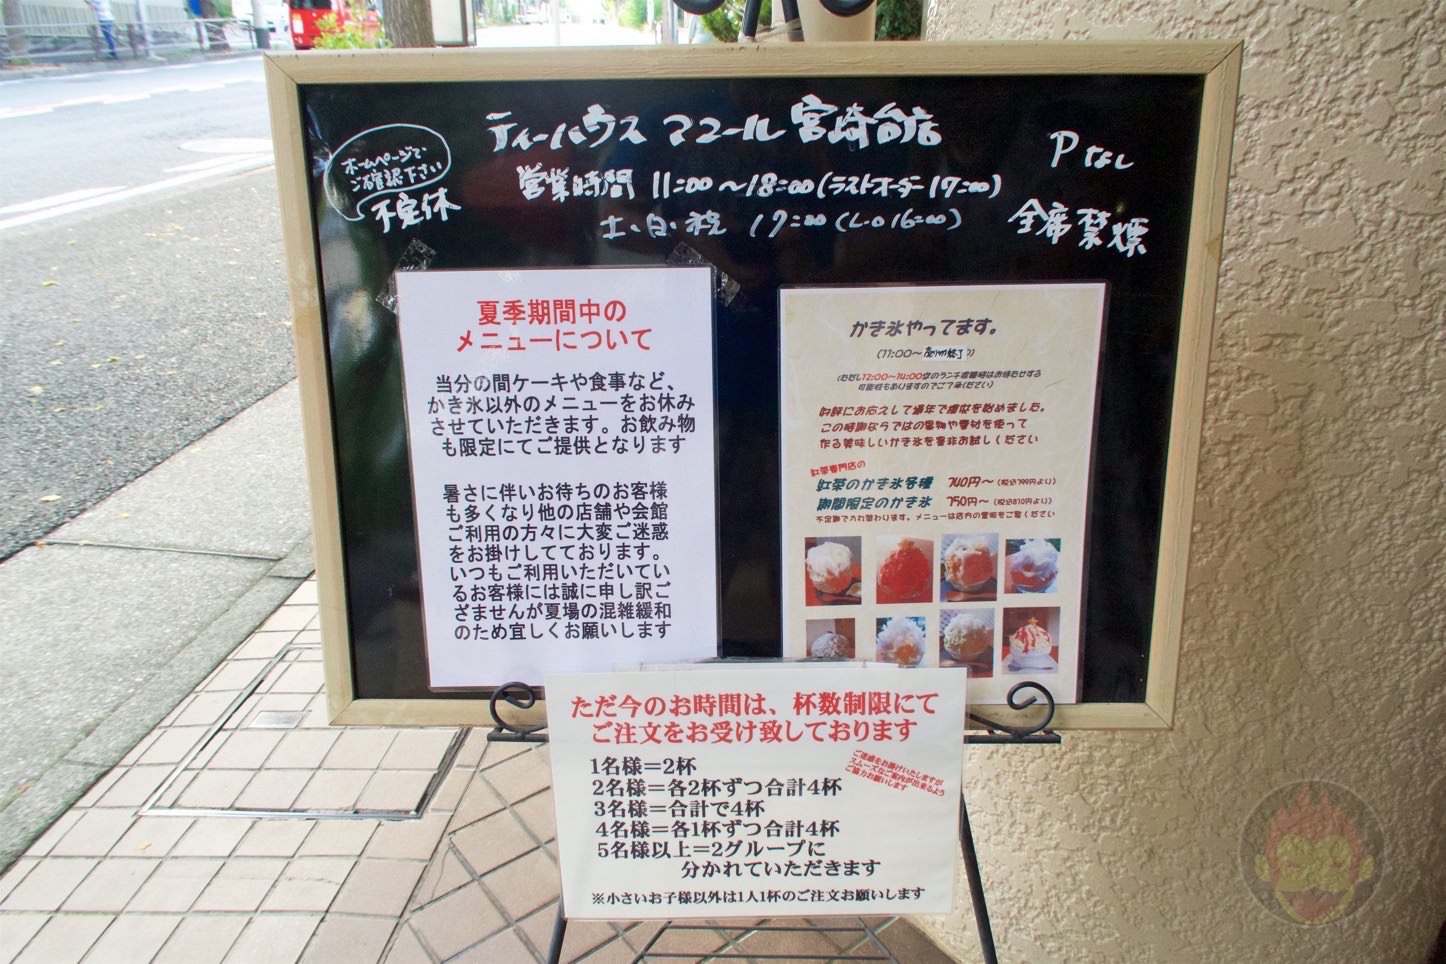 ティーハウス マユール 宮崎台店
Pなし
ホームページで
ご確認下さい
不定休
営業時間 11:00〜18:00(ラストオーダー17:00)
土・日・祝 17:00(L.O 16:00)
全席禁煙
夏季期間中の
メニューについて
当分の間ケーキや食事など、
かき氷以外のメニューをお休み
させていただきます。お飲み物
も限定にてご提供となります
暑さに伴いお待ちのお客様
も多くなり他の店舗や会館
ご利用の方々に大変ご迷惑
をお掛けしてております。
いつもご利用いただいてい
るお客様には誠に申し訳ご
ざませんが夏場の混雑緩和
のため宜しくお願いします
かき氷やってます。
(11:00〜売り切れ終了)
(ただし12:00〜14:00頃のランチ提供時はお待たせする
可能性もありますのでご了承ください)
好評にお応えして通年で提供を始めました。
この時期ならではの果物や食材を使って
作る美味しいかき氷を是非お試しください
紅茶専門店の
紅茶のかき氷各種 740円〜(税込799円より)
期間限定のかき氷 750円〜(税込810円より)
不定期で入れ替わります。メニューは店内の黒板をご覧ください
ただ今のお時間は、杯数制限にて
ご注文をお受け致しております
1名様=2杯
2名様=各2杯ずつ合計4杯
3名様=合計で4杯
4名様=各1杯ずつ合計4杯
5名様以上=2グループに
分かれていただきます
ご迷惑をお掛けいたしますが
スムーズなご案内が出来るよう
ご協力お願いします
※小さいお子様以外は1人1杯のご注文お願いします